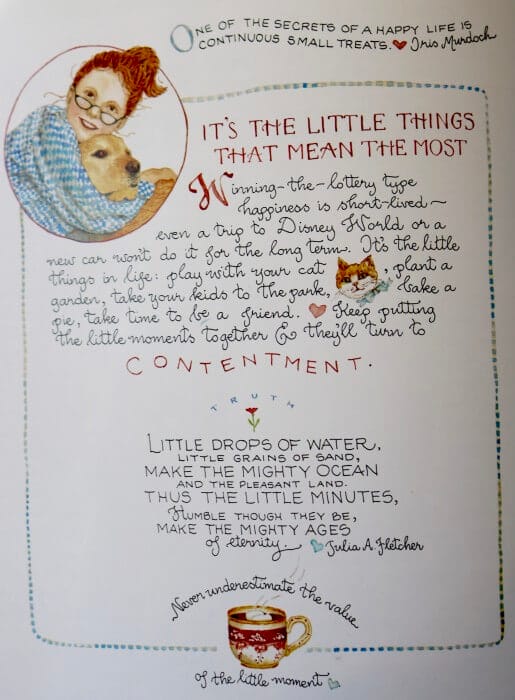 ONE OF THE SECRETS OF A HAPPY LIFE IS
CONTINUOUS SMALL TREATS. ♥ Iris Murdoch
IT'S THE LITTLE THINGS
THAT MEAN THE MOST
Winning-the-lottery type
happiness is short-lived ~
even a trip to Disney World or a
new car won't do it for the long term. It's the little
things in life: play with your cat , plant a
garden, take your kids to the park, bake a
pie, take time to be a friend. ♥ Keep putting
the little moments together & they'll turn to
CONTENTMENT.
TRUTH
LITTLE DROPS OF WATER,
LITTLE GRAINS OF SAND,
MAKE THE MIGHTY OCEAN
AND THE PLEASANT LAND.
THUS THE LITTLE MINUTES,
HUMBLE THOUGH THEY BE,
MAKE THE MIGHTY AGES
of eternity. ♥ Julia A. Fletcher
Never underestimate the value
of the little moment ♥